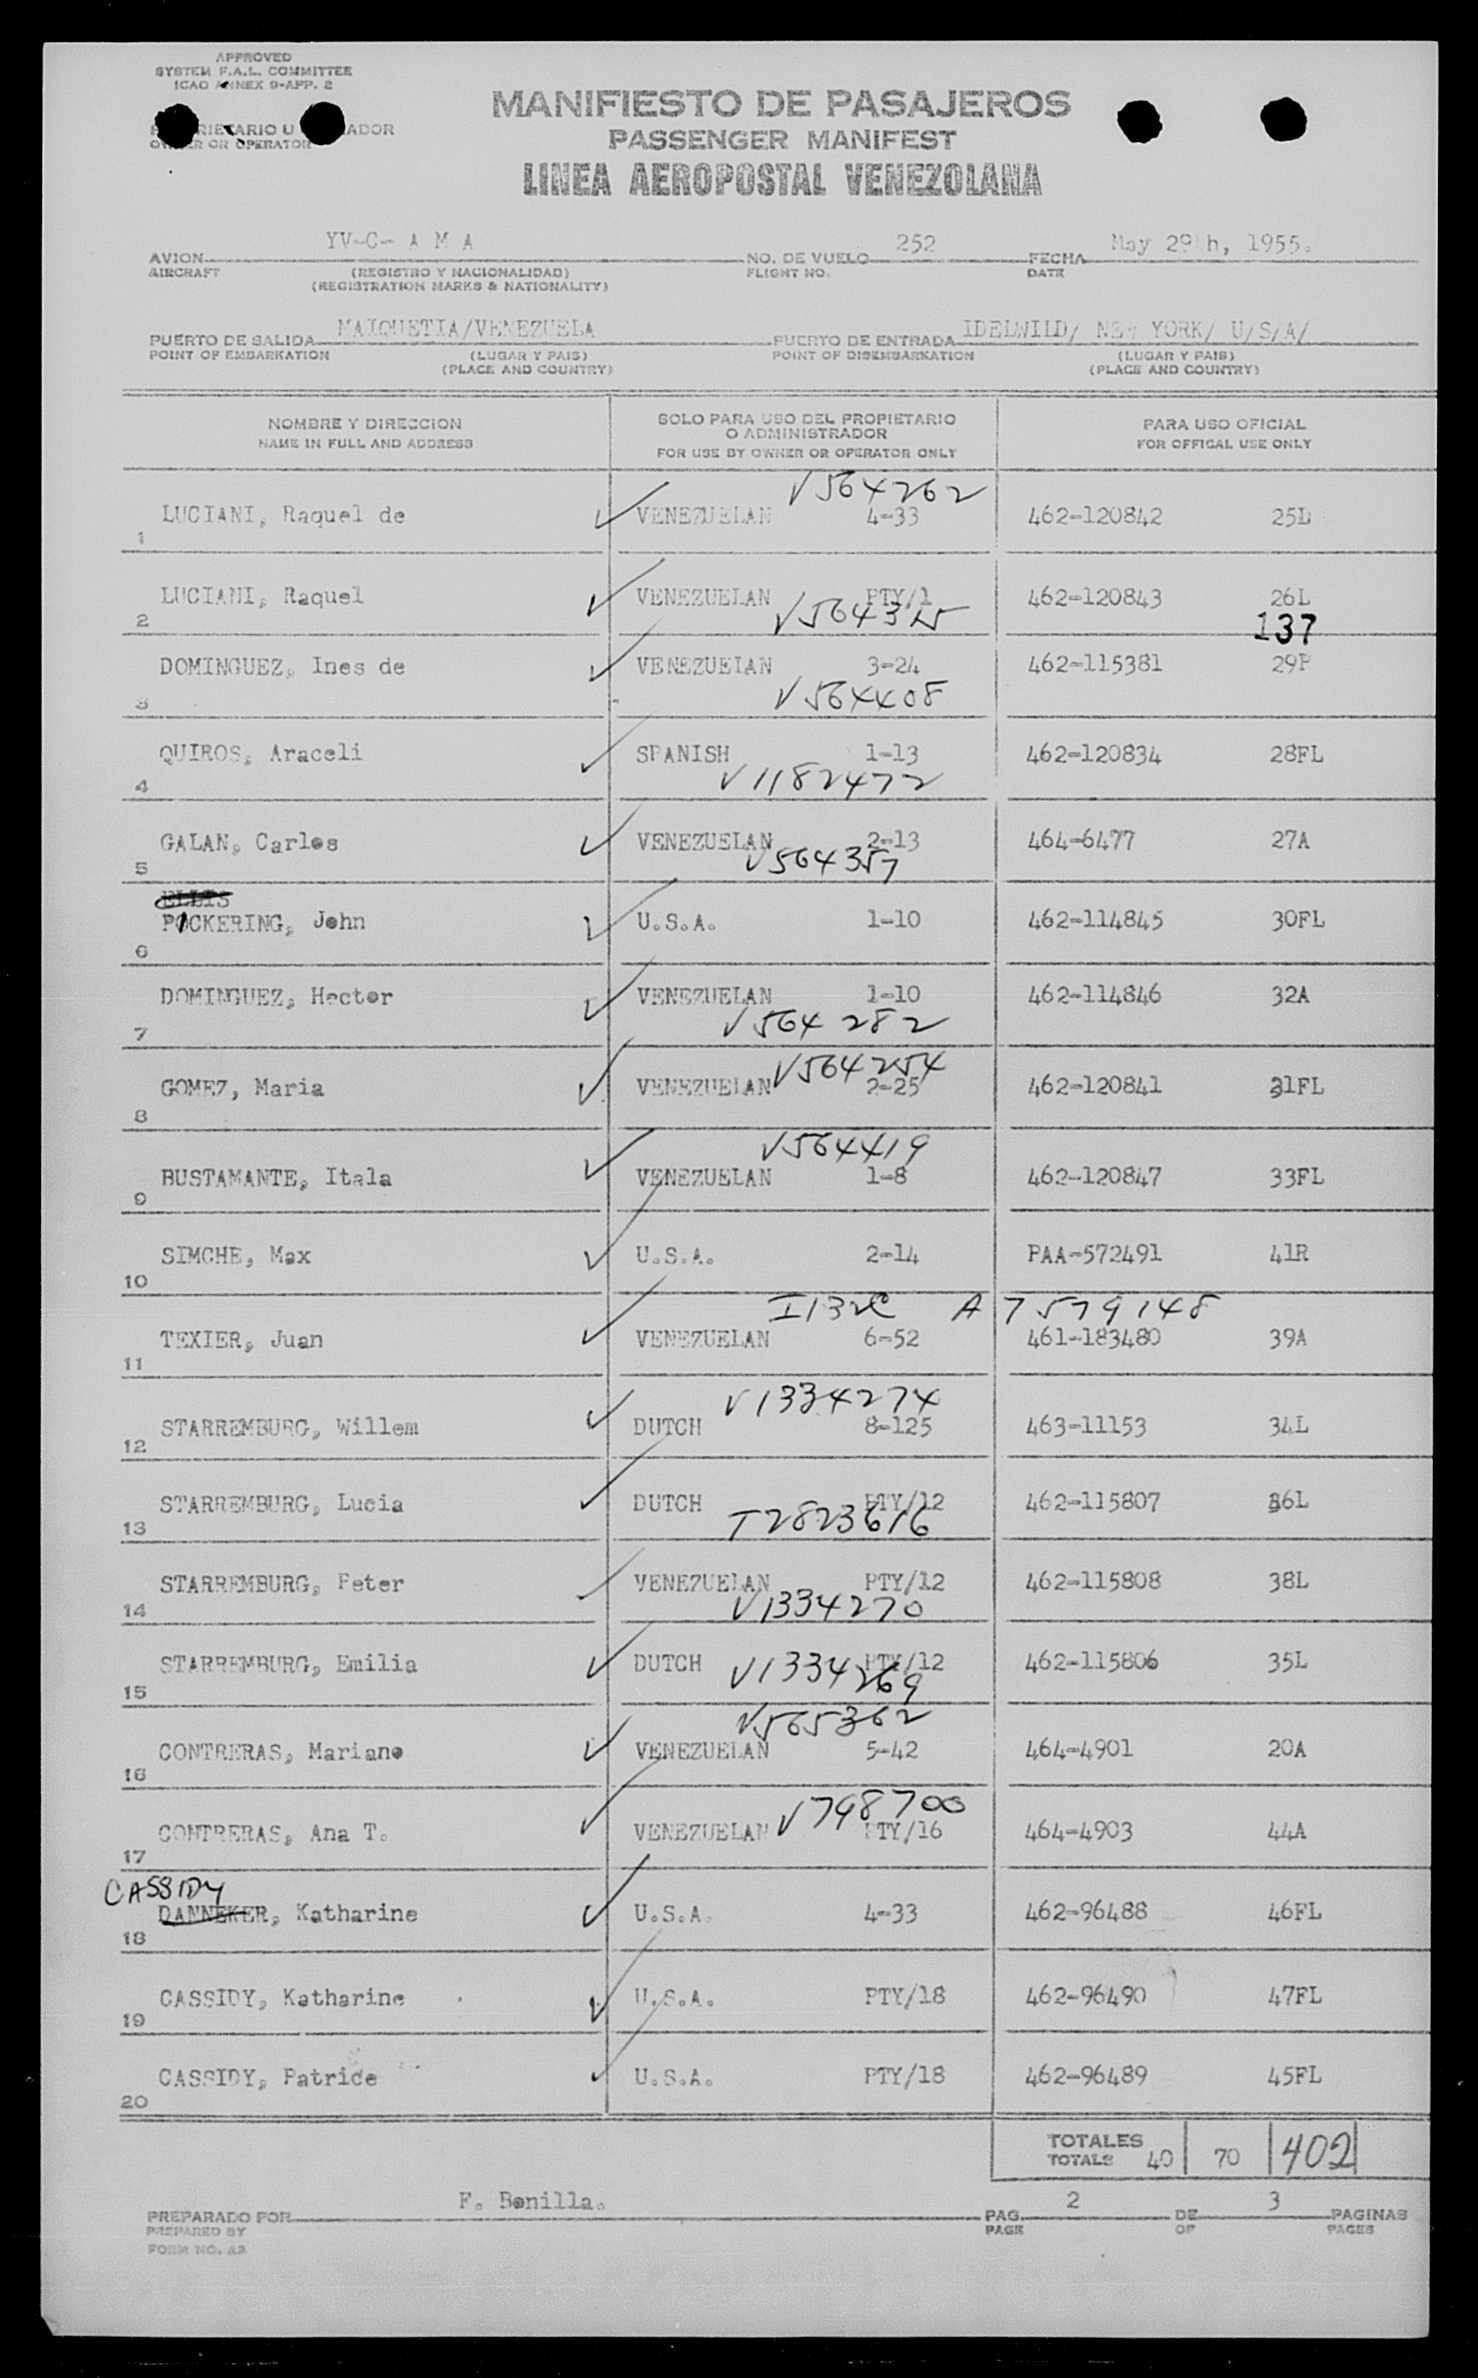 APPROVED
SYSTEM F.A.L. COMMITTEE
ICAO ANNEX 9-APP. 2
MANIFIESTO DE PASAJEROS
PASSENGER MANIFEST
LINEA AEROPOSTAL VENEZOLANA
OR OPERATOR
YV-C- A M A 252 May 29th, 1955.
AVION NO. DE VUELO FECHA
AIRCRAFT (REGISTRO Y NACIONALIDAD) FLIGHT NO. DATE
(REGISTRATION MARKS & NATIONALITY)
MAIQUETIA/VENEZUELA IDELWILD/ NEW YORK/ U/S/A/
PUERTO DE SALIDA PUERTO DE ENTRADA
POINT OF EMBARKATION (LUGAR Y PAIS) POINT OF DISEMBARKATION (LUGAR Y PAIS)
(PLACE AND COUNTRY) (PLACE AND COUNTRY)
NOMBRE Y DIRECCION SOLO PARA USO DEL PROPIETARIO PARA USO OFICIAL
O ADMINISTRADOR
NAME IN FULL AND ADDRESS FOR USE BY OWNER OR OPERATOR ONLY FOR OFFICAL USE ONLY
V564262
LUCIANI, Raquel de VENEZUELAN 4-33 462-120842 25L
1
LUCIANI, Raquel VENEZUELAN PTY/1 462-120843 26L
2 137
DOMINGUEZ, Ines de VENEZUELAN 3-24 462-115381 29F
3 V564408
QUIROS, Araceli SPANISH 1-13 462-120834 28FL
4 V1182472
GALAN, Carlos VENEZUELAN 2-13 464-6477 27A
5 V564357
ELLIS
PICKERING, John U.S.A. 1-10 462-114845 30FL
6
DOMINGUEZ, Hector VENEZUELAN 1-10 462-114846 32A
7 V564282
V564254
GOMEZ, Maria VENEZUELAN 2-25 462-120841 31FL
8
V564419
BUSTAMANTE, Itala VENEZUELAN 1-8 462-120847 33FL
9
SIMCHE, Max U.S.A. 2-14 PAA-572491 41R
10
A7579148
TEXIER, Juan VENEZUELAN 6-52 461-183480 39A
11
V1334274
STARREMBURG, Willem DUTCH 8-125 463-11153 34L
12
STARREMBURG, Lucia DUTCH PTY/12 462-115807 36L
13 T2823616
STARREMBURG, Peter VENEZUELAN PTY/12 462-115808 38L
14 V1334270
STARREMBURG, Emilia DUTCH PTY/12 462-115806 35L
15 V1334269
V565362
CONTRERAS, Mariano VENEZUELAN 5-42 464-4901 20A
16
V798700
CONTRERAS, Ana T. VENEZUELAN PTY/16 464-4903 44A
17
CASSIDY
DANNEKER, Katharine U.S.A. 4-33 462-96488 46FL
18
CASSIDY, Katharine U.S.A. PTY/18 462-96490 47FL
19
CASSIDY, Patrice U.S.A. PTY/18 462-96489 45FL
20
TOTALES
TOTALS 40 70 402
F. Bonilla. 2 3
PREPARADO POR PAG. DE PAGINAS
PREPARED BY PAGE OF PAGES
FORM NO.